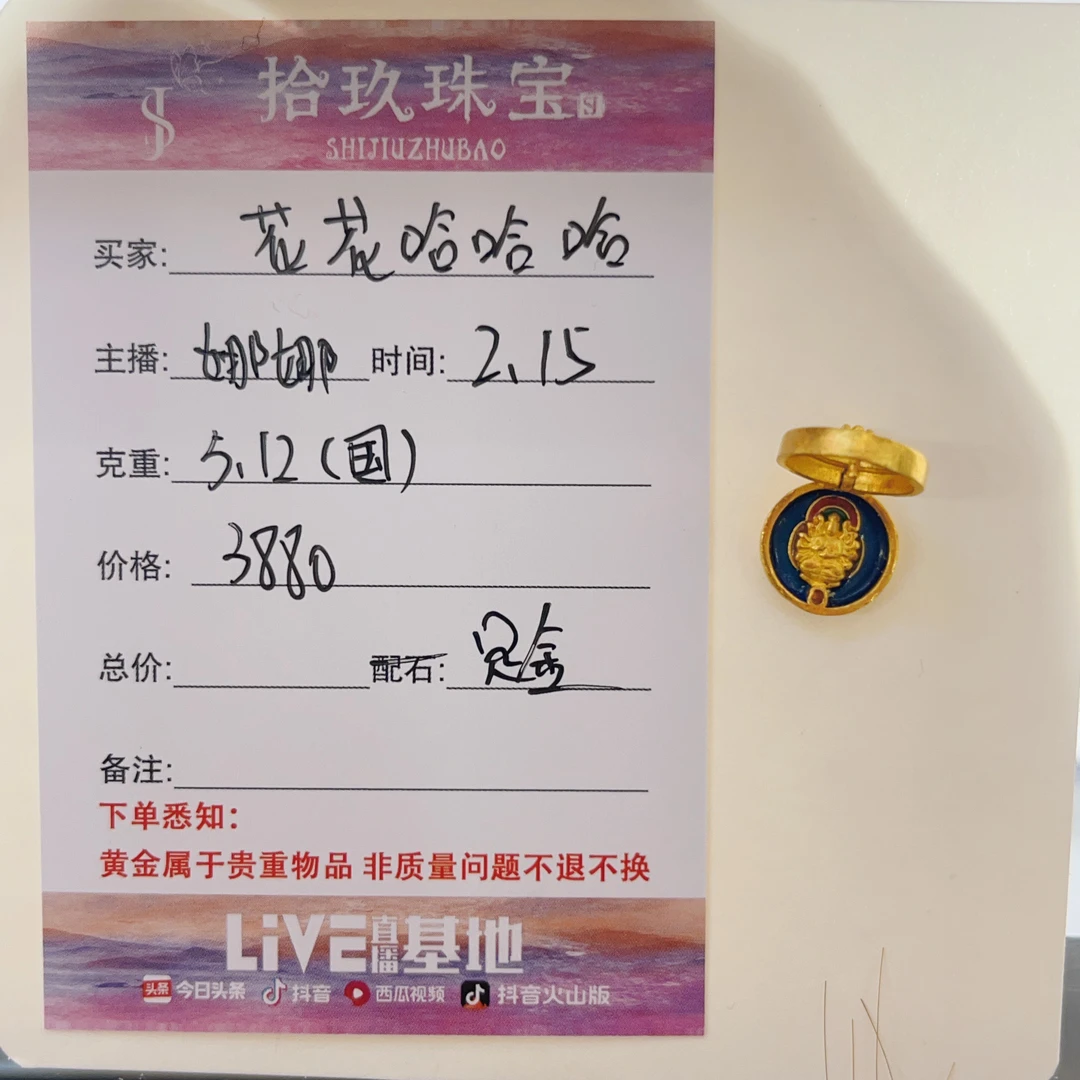 拾玖珠宝
SHIJIUZHUBAO
买家: 花花哈哈哈
主播: 娜娜 时间: 2.15
克重: 5.12(国)
价格: 3880
总价: 配石: 足金
备注:
下单悉知:
黄金属于贵重物品 非质量问题不退不换
LiVE直播基地
头条 今日头条 抖音 西瓜视频 抖音火山版